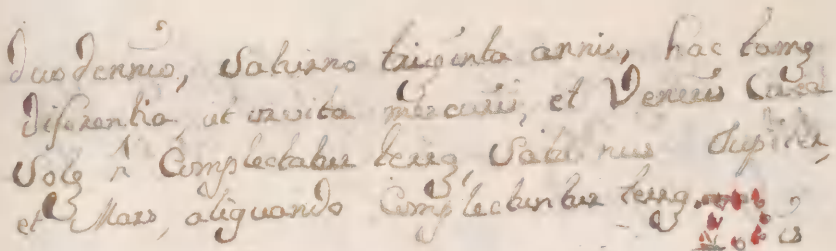 duodennio, Saturno triginta annis, hac tamę
diferentia, ut orvita mercurii, et Veneris circa
Solę n̄ Complectatur terrą, Saturnus Jupiter,
et Mars, aliquando Complectuntur terrą.